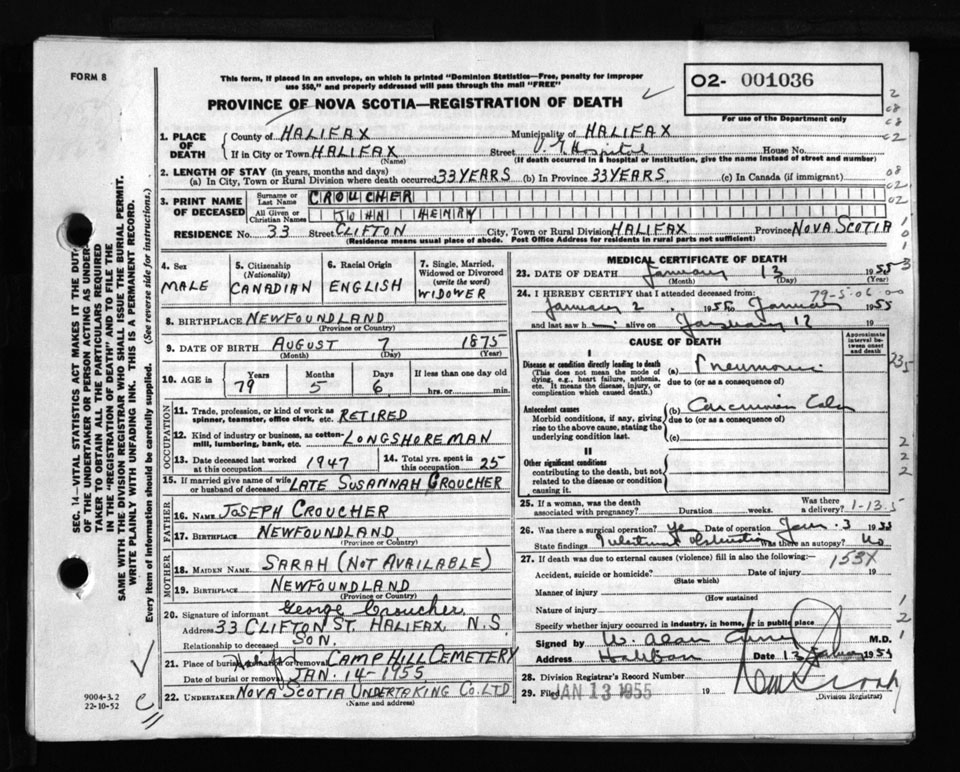 FORM 8
This form, if placed in an envelope, on which is printed "Dominion Statistics—Free, penalty for improper
use $50," and properly addressed will pass through the mail "FREE"
02- 001036
For use of the Department only
PROVINCE OF NOVA SCOTIA—REGISTRATION OF DEATH
1. PLACE OF DEATH County of HALIFAX Municipality of HALIFAX
If in City or Town HALIFAX (Name) Street V. G. Hospital House No.
(If death occurred in a hospital or institution, give the name instead of street and number)
2. LENGTH OF STAY (in years, months and days)
(a) In City, Town or Rural Division where death occurred 33 YEARS (b) In Province 33 YEARS (c) In Canada (if immigrant)
3. PRINT NAME OF DECEASED Surname or Last Name CROUCHER
All Given or Christian Names JOHN HENRY
RESIDENCE No. 33 Street CLIFTON City, Town or Rural Division HALIFAX Province NOVA SCOTIA
(Residence means usual place of abode. Post Office Address for residents in rural parts not sufficient)
4. Sex MALE
5. Citizenship (Nationality) CANADIAN
6. Racial Origin ENGLISH
7. Single, Married, Widowed or Divorced (write the word) WIDOWER
8. BIRTHPLACE NEWFOUNDLAND
(Province or Country)
9. DATE OF BIRTH AUGUST 7 1875
(Month) (Day) (Year)
10. AGE in Years 79 Months 5 Days 6 If less than one day old hrs. or min.
OCCUPATION
11. Trade, profession, or kind of work as spinner, teamster, office clerk, etc. RETIRED
12. Kind of industry or business, as cotton-mill, lumbering, bank, etc. LONGSHOREMAN
13. Date deceased last worked at this occupation 1947 14. Total yrs. spent in this occupation 25
15. If married give name of wife or husband of deceased LATE SUSANNAH CROUCHER
FATHER
16. NAME JOSEPH CROUCHER
17. BIRTHPLACE NEWFOUNDLAND
(Province or Country)
MOTHER
18. MAIDEN NAME SARAH (NOT AVAILABLE)
19. BIRTHPLACE NEWFOUNDLAND
(Province or Country)
20. Signature of informant George Croucher
Address 33 CLIFTON ST. HALIFAX, N.S.
Relationship to deceased SON.
21. Place of burial, cremation or removal Halifax CAMP HILL CEMETERY
Date of burial or removal JAN. 14-1955
22. UNDERTAKER NOVA SCOTIA UNDERTAKING CO. LTD
(Name and address)
MEDICAL CERTIFICATE OF DEATH
23. DATE OF DEATH January 13 1955
(Month) (Day) (Year)
24. I HEREBY CERTIFY that I attended deceased from: 79-5-06-00
January 2 1955 to January 1955
and last saw h im alive on January 12 19
CAUSE OF DEATH
Approximate interval between onset and death
I
Disease or condition directly leading to death (a) Pneumonia
(This does not mean the mode of dying, e.g., heart failure, asthenia, etc. It means the disease, injury, or complication which caused death.)
due to (or as a consequence of)
Antecedent causes (b)
Morbid conditions, if any, giving rise to the above cause, stating the underlying condition last.
due to (or as a consequence of)
(c)
II
Other significant conditions
contributing to the death, but not related to the disease or condition causing it.
25. If a woman, was the death associated with pregnancy? Duration weeks. Was there a delivery? 1-13-5
26. Was there a surgical operation? Yes Date of operation Jan. 3 1955
State findings Intestinal Obstruction Was there an autopsy? No
27. If death was due to external causes (violence) fill in also the following:— 153X
Accident, suicide or homicide? (State which) Date of injury 19
Manner of injury
(How sustained)
Nature of injury
Specify whether injury occurred in industry, in home, or in public place
Signed by W. Alan M.D.
Address Halifax Date 13 January 1954
28. Division Registrar's Record Number
29. Filed JAN 13 1955 19
(Division Registrar)
9004-3.2
22-10-52
SEC. 14—VITAL STATISTICS ACT MAKES IT THE DUTY
OF THE UNDERTAKER OR PERSON ACTING AS UNDER-
TAKER TO OBTAIN ALL THE PARTICULARS REQUIRED
IN THE "REGISTRATION OF DEATH" AND TO FILE THE
SAME WITH THE DIVISION REGISTRAR WHO SHALL ISSUE THE BURIAL PERMIT.
WRITE PLAINLY WITH UNFADING INK. THIS IS A PERMANENT RECORD.
Every item of Information should be carefully supplied. (See reverse side for instructions.)